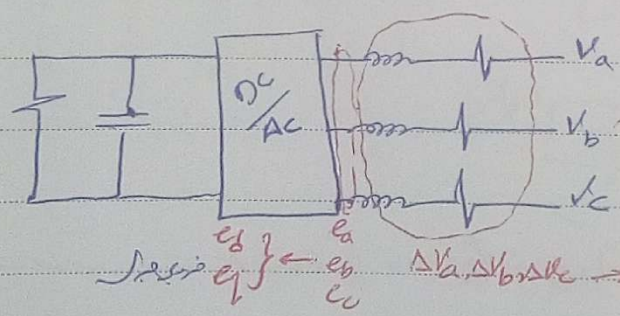 DC/AC
Va
Vb
Vc
ed
eq } ←
ea
eb
ec
ΔVa, ΔVb, ΔVc →